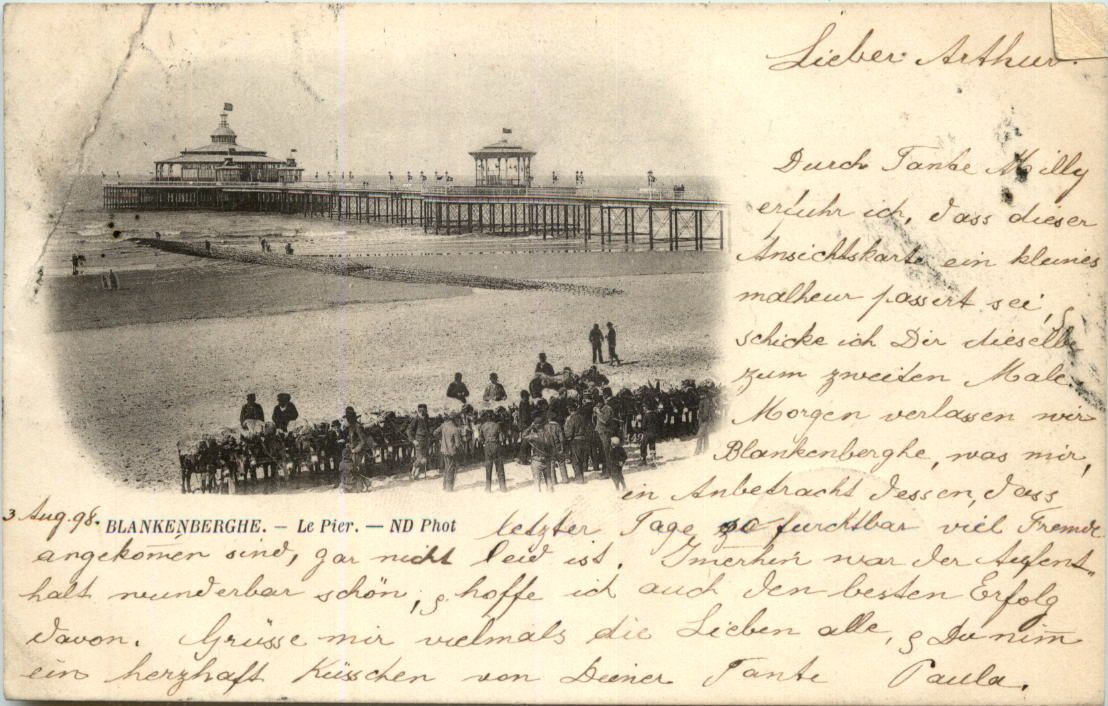 Lieber Arthur.
Durch Tante Milly
erfuhr ich, dass dieser
Ansichtskarte ein kleines
malheur passiert sei, &
schicke ich Dir dieselbe
zum zweiten Male.
Morgen verlassen wir
Blankenberghe, was mir,
in Anbetracht dessen, dass
3 Aug. 98. BLANKENBERGHE. – Le Pier. – ND Phot letzter Tage so furchtbar viel Fremde
angekom̄en sind, gar nicht leid ist. Im̄erhin war der Aufent-
halt wunderbar schön, & hoffe ich auch den besten Erfolg
davon. Grüsse mir vielmals die Lieben alle, & Du nim̄
ein herzhaft Küsschen von Deiner Tante Paula.